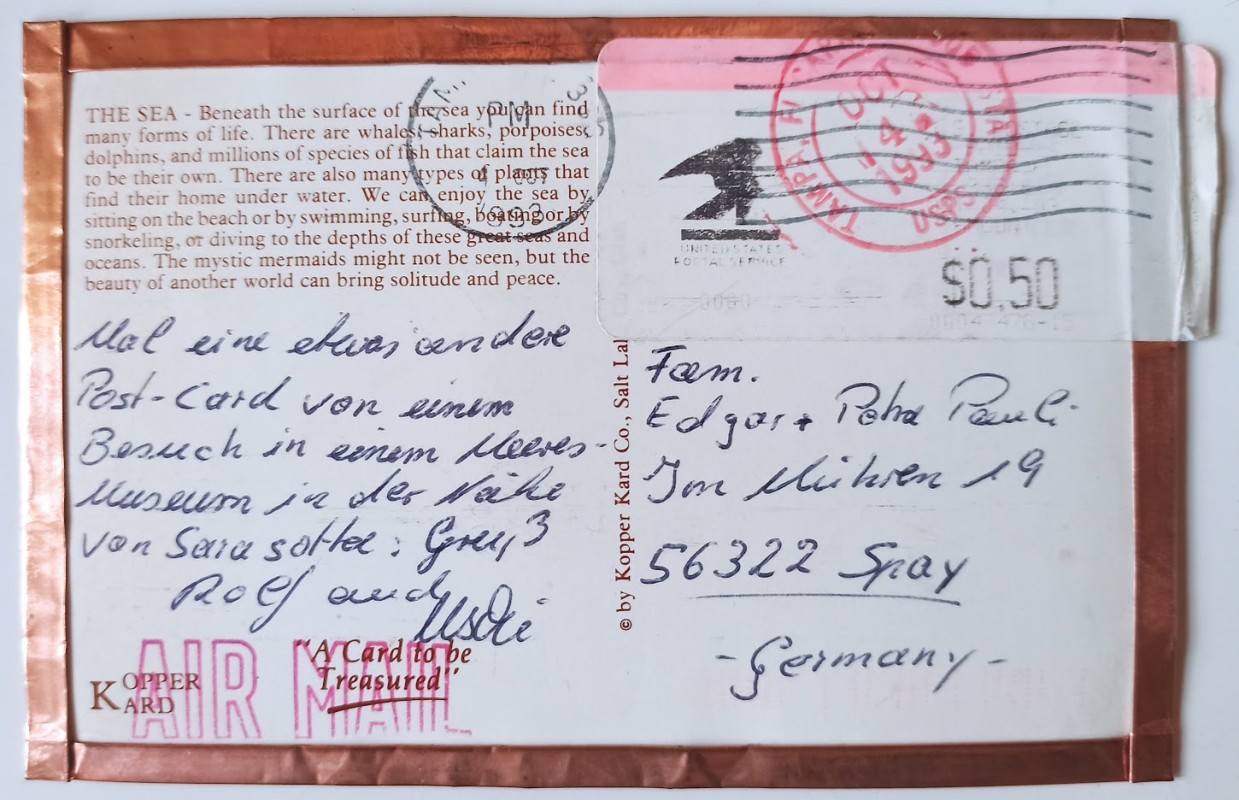 THE SEA - Beneath the surface of the sea you can find
many forms of life. There are whales, sharks, porpoises,
dolphins, and millions of species of fish that claim the sea
to be their own. There are also many types of plants that
find their home under water. We can enjoy the sea by
sitting on the beach or by swimming, surfing, boating or by
snorkeling, or diving to the depths of these great seas and
oceans. The mystic mermaids might not be seen, but the
beauty of another world can bring solitude and peace.
Mal eine etwas andere
Post-Card von einem
Besuch in einem Meeres-
Museum in der Nähe
von Sarasotta: Gruß
Rolf and Uschi
AIR MAIL
"A Card to be
Treasured"
KOPPER
KARD
© by Kopper Kard Co., Salt
PM
4 OCT
1993
TAMPA, FL
OCT
4
1993
USPS
UNITED STATES
POSTAL SERVICE
$0.50
Fam.
Edgar + Petra Pauli
Im Mühren 19
56322 Spay
-Germany-